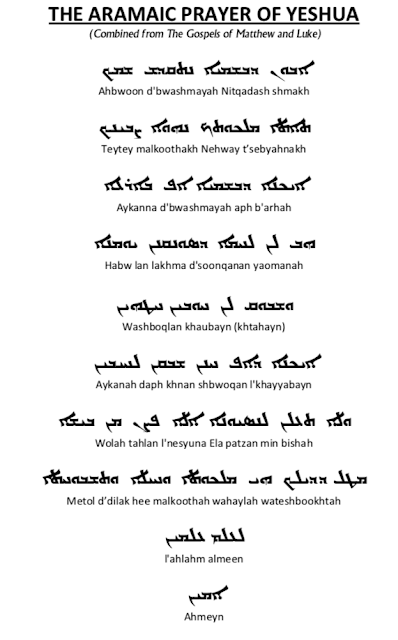 THE ARAMAIC PRAYER OF YESHUA
(Combined from The Gospels of Matthew and Luke)
ܐܒܘܢ ܕܒܫܡܝܐ ܢܬܩܕܫ ܫܡܟ
Ahbwoon d'bwashmayah Nitqadash shmakh
ܬܐܬܐ ܡܠܟܘܬܟ ܢܗܘܐ ܨܒܝܢܟ
Teytey malkoothakh Nehway t'sebyahnakh
ܐܝܟܢܐ ܕܒܫܡܝܐ ܐܦ ܒܐܪܥܐ
Aykanna d'bwashmayah aph b'arhah
ܗܒ ܠܢ ܠܚܡܐ ܕܣܘܢܩܢܢ ܝܘܡܢܐ
Habw lan lakhma d'soonqanan yaomanah
ܘܫܒܘܩ ܠܢ ܚܘܒܝܢ ܚܛܗܝܢ
Washboqlan khaubayn (khtahayn)
ܐܝܟܢܐ ܕܐܦ ܚܢܢ ܫܒܩܢ ܠܚܝܒܝܢ
Aykanah daph khnan shbwoqan l'khayyabayn
ܘܠܐ ܬܥܠܢ ܠܢܣܝܘܢܐ ܐܠܐ ܦܨܢ ܡܢ ܒܝܫܐ
Wolah tahlan l'nesyuna Ela patzan min bishah
ܡܛܠ ܕܕܝܠܟ ܗܝ ܡܠܟܘܬܐ ܘܚܝܠܐ ܘܬܫܒܘܚܬܐ
Metol d'dilak hee malkoothah wahaylah wateshbookhtah
ܠܥܠܡ ܥܠܡܝܢ
l'ahlahm almeen
ܐܡܝܢ
Ahmeyn